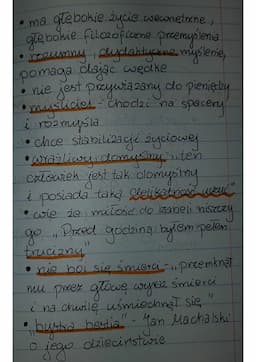 • ma głębokie życie wewnętrzne,
głębokie filozoficzne przemyślenia
• rozumny, dydaktyczne myślenie,
pomaga dając wędkę
• nie jest przywiązany do pieniędzy
• myśliciel - chodzi na spacery
i rozmyśla
• chce stabilizacji życiowej
• wrażliwy, domyślny „ten
człowiek jest tak domyślny
i posiada taką delikatność uczuć"
• wie że miłość do Izabeli niszczy
go „Przed godziną byłem pełen
trucizny"
• nie boi się śmierci - „przemknął
mu przez głowę wyraz śmierci
i na chwilę uśmiechnął się"
• "bystra bestia" - Jan Machalski
o jego dzieciństwie